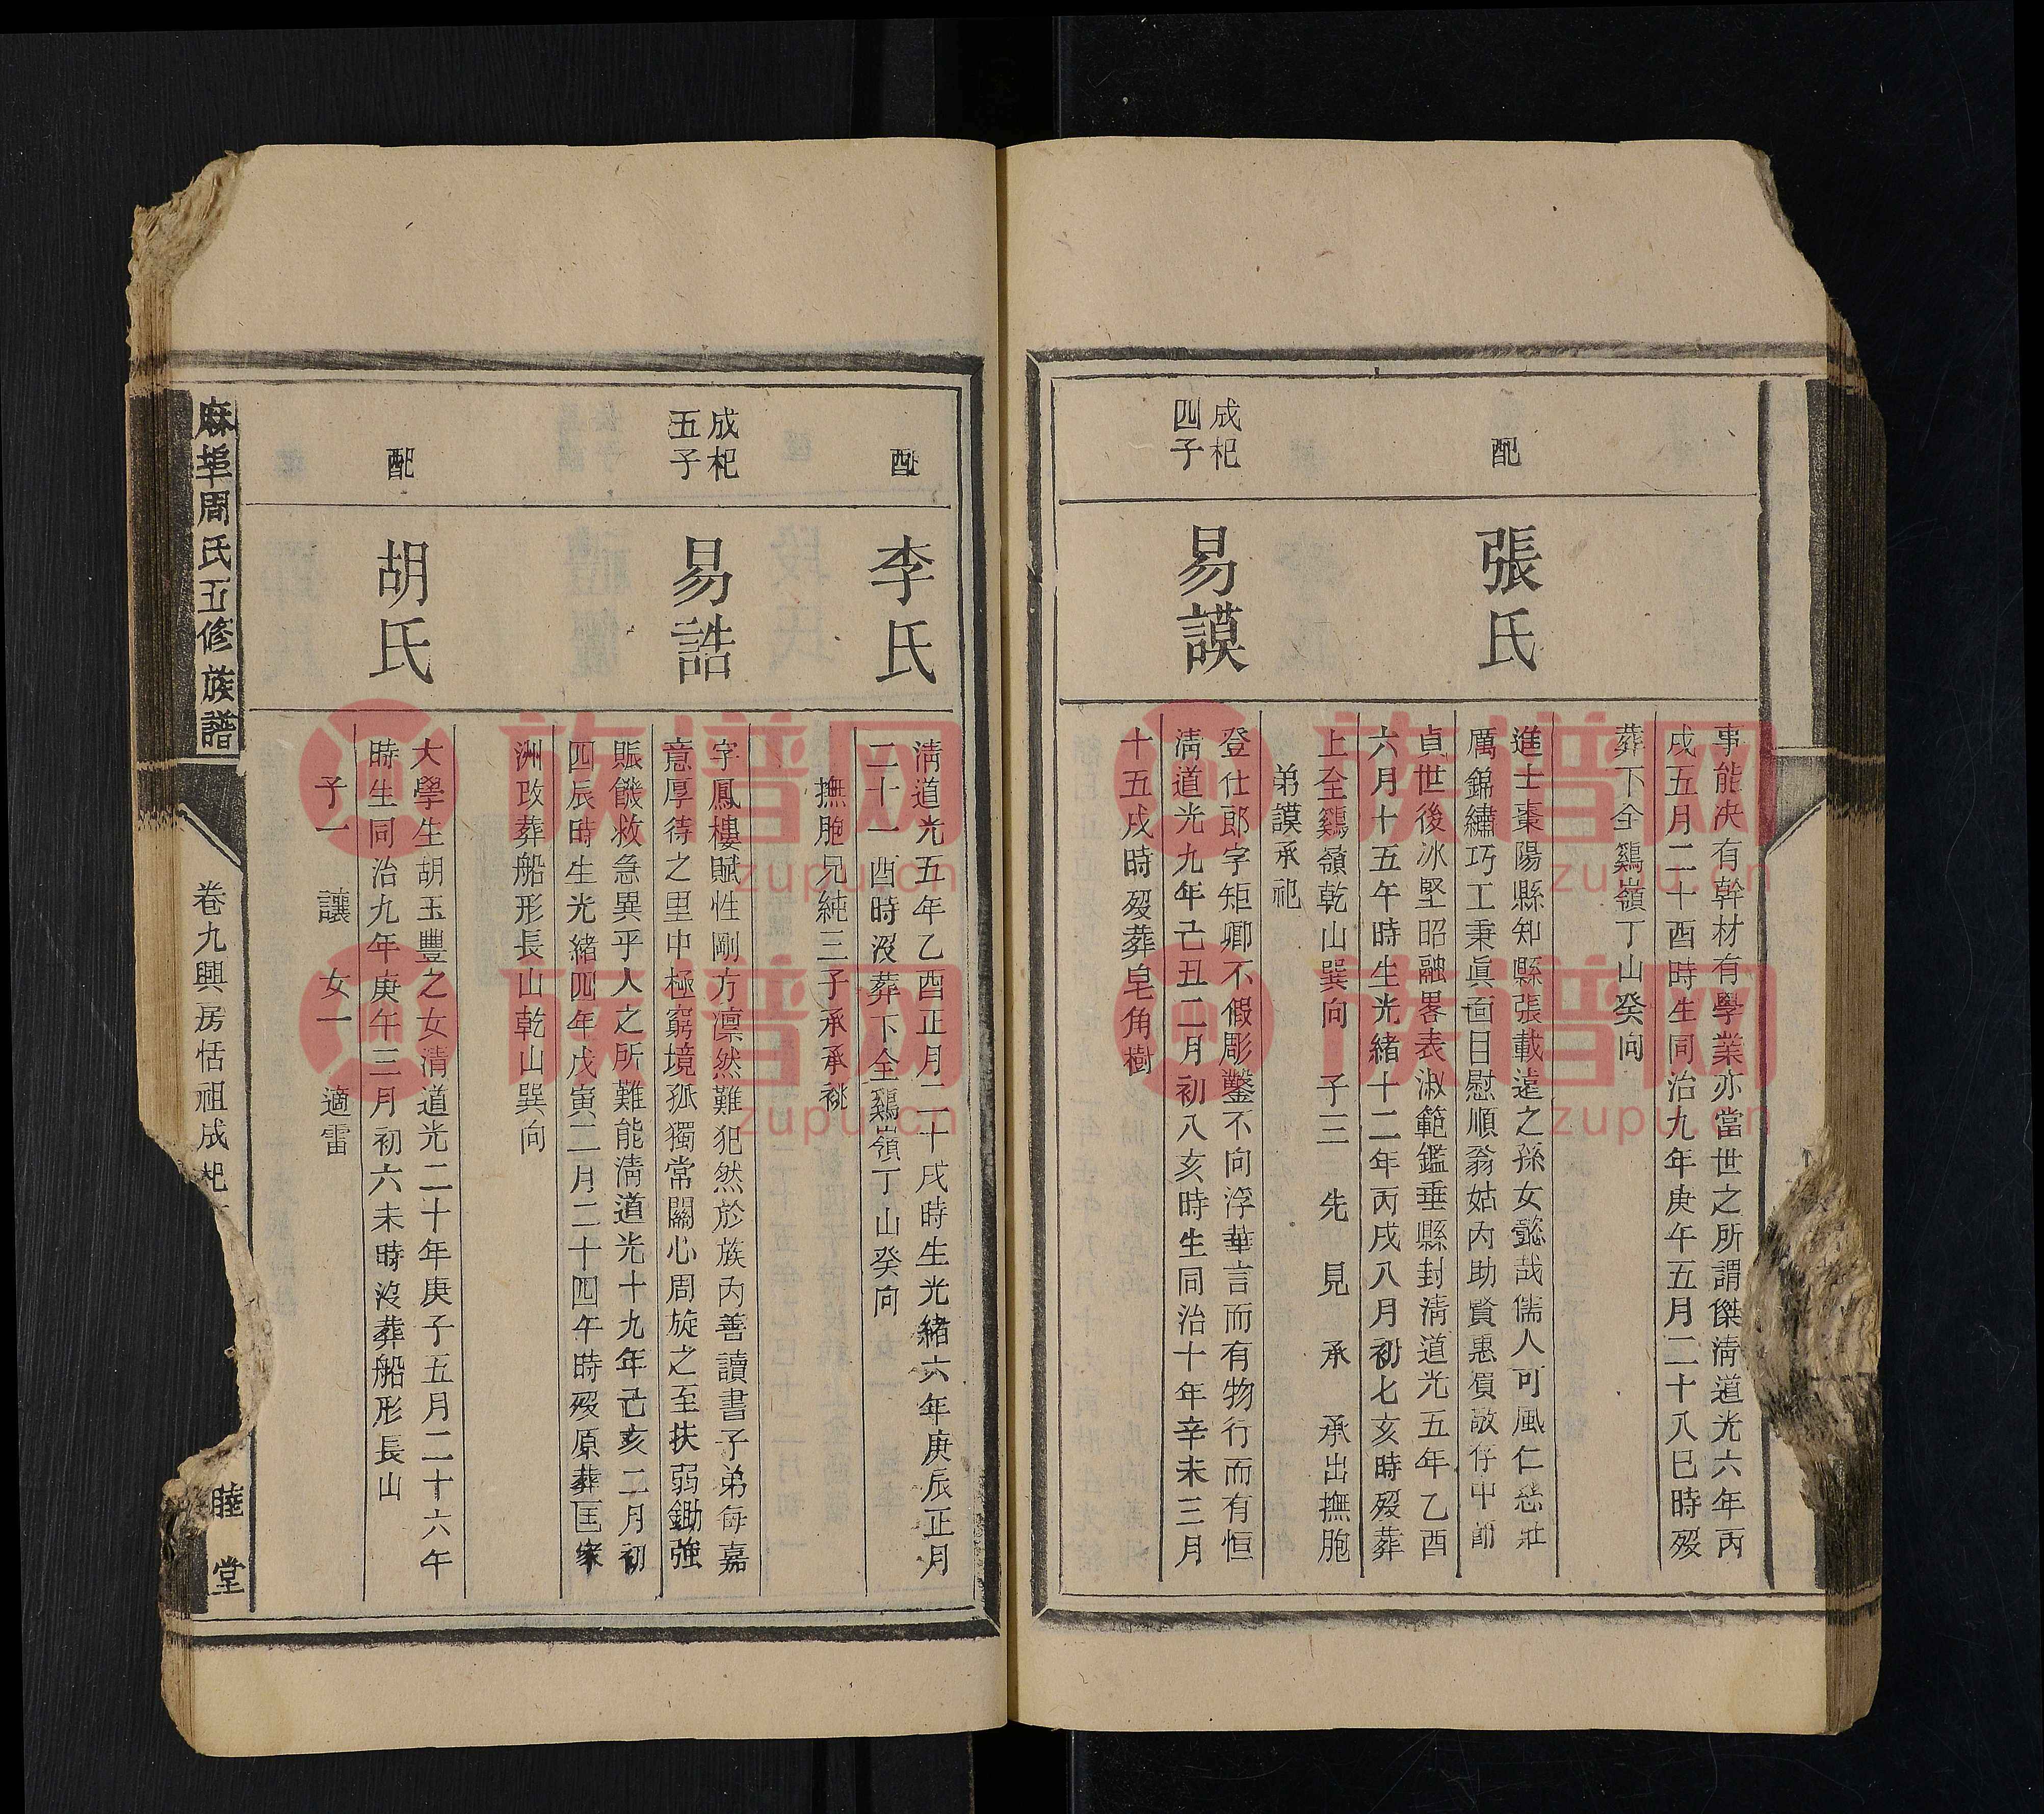 事能决有幹材有學業亦當世之所謂傑清道光六年丙
戌五月二十酉時生同治九年庚午五月二十八巳時殁
葬下全鷄嶺丁山癸向
配
張氏
進士棗陽縣知縣張載遠之孫女懿哉儒人可風仁慈壯
厲錦繡巧工秉眞面目慰順翁姑內助賢惠儐敵仔中節
貞世後冰堅昭融畧表淑範鑑垂縣封清道光五年乙酉
六月十五午時生光緒十二年丙戌八月初七亥時殁葬
上全鷄嶺乾山巽向 子三 先 見 承 承出撫胞
弟謨承祀
成杞
四子
易謨
登仕郎字矩卿不假彫鑿不向浮華言而有物行而有恒
清道光九年己丑二月初八亥時生同治十年辛未三月
十五戌時殁葬皂角樹
配
李氏
清道光五年乙酉正月二十戌時生光緒六年庚辰正月
二十一酉時沒葬下全鷄嶺丁山癸向
撫胞兄純三子承承祧
成杞
五子
易誥
字鳳樓賦性剛方凛然難犯然於族內善讀書子弟每嘉
意厚待之里中極窮境孤獨常關心周旋之至扶弱鋤強
賑饑救急異乎人之所難能清道光十九年己亥二月初
四辰時生光緒四年戊寅二月二十四午時殁原葬匡家
洲改葬船形長山乾山巽向
配
胡氏
大學生胡玉豐之女清道光二十年庚子五月二十六午
時生同治九年庚午三月初六未時沒葬船形長山
子一 讓 女一 適雷
麻埠周氏五修族譜
卷九興房恬祖成杞
睦堂
族譜网
zupu.cn
族譜网
zupu.cn
族譜网
zupu.cn
族譜网
zupu.cn